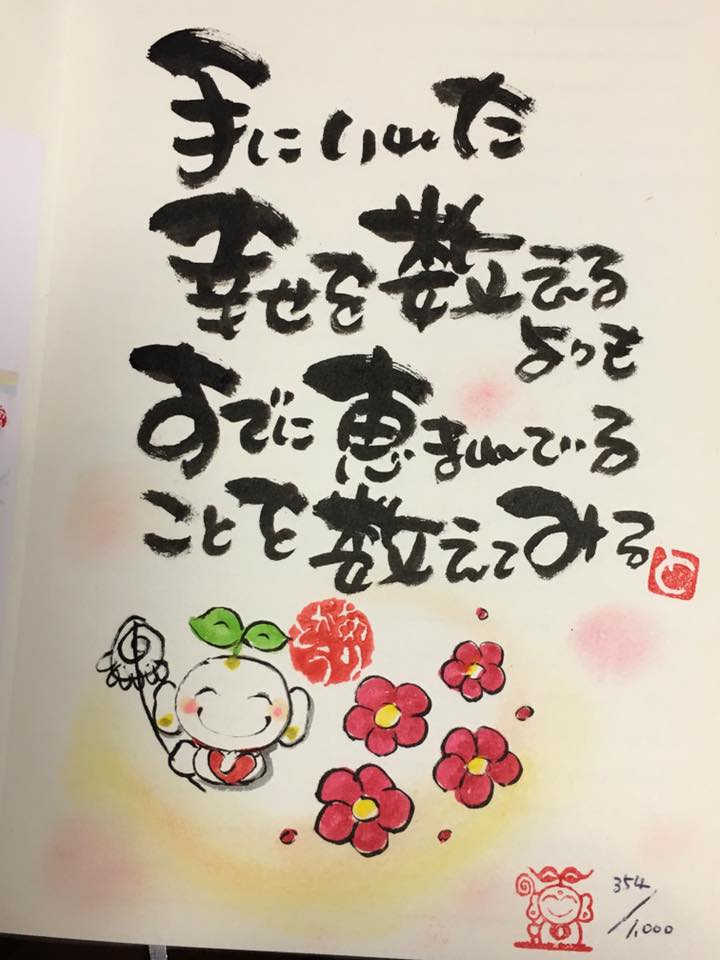 手にいれた
幸せを数える
よりも
すでに恵まれている
ことを数えてみる
354/1,000